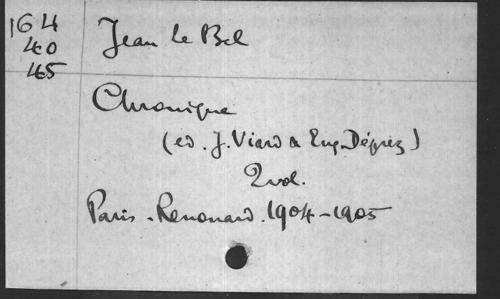 164
40
45
Jean le Bel
Chronique
(ed. J. Viard & Eug. Déprez)
2 vol.
Paris - Renouard. 1904-1905